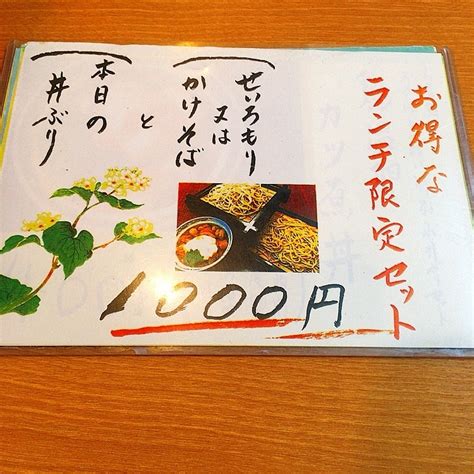 お得な
ランチ限定セット
せいろもり
又は
かけそば
と
本日の
丼ぶり
1000円